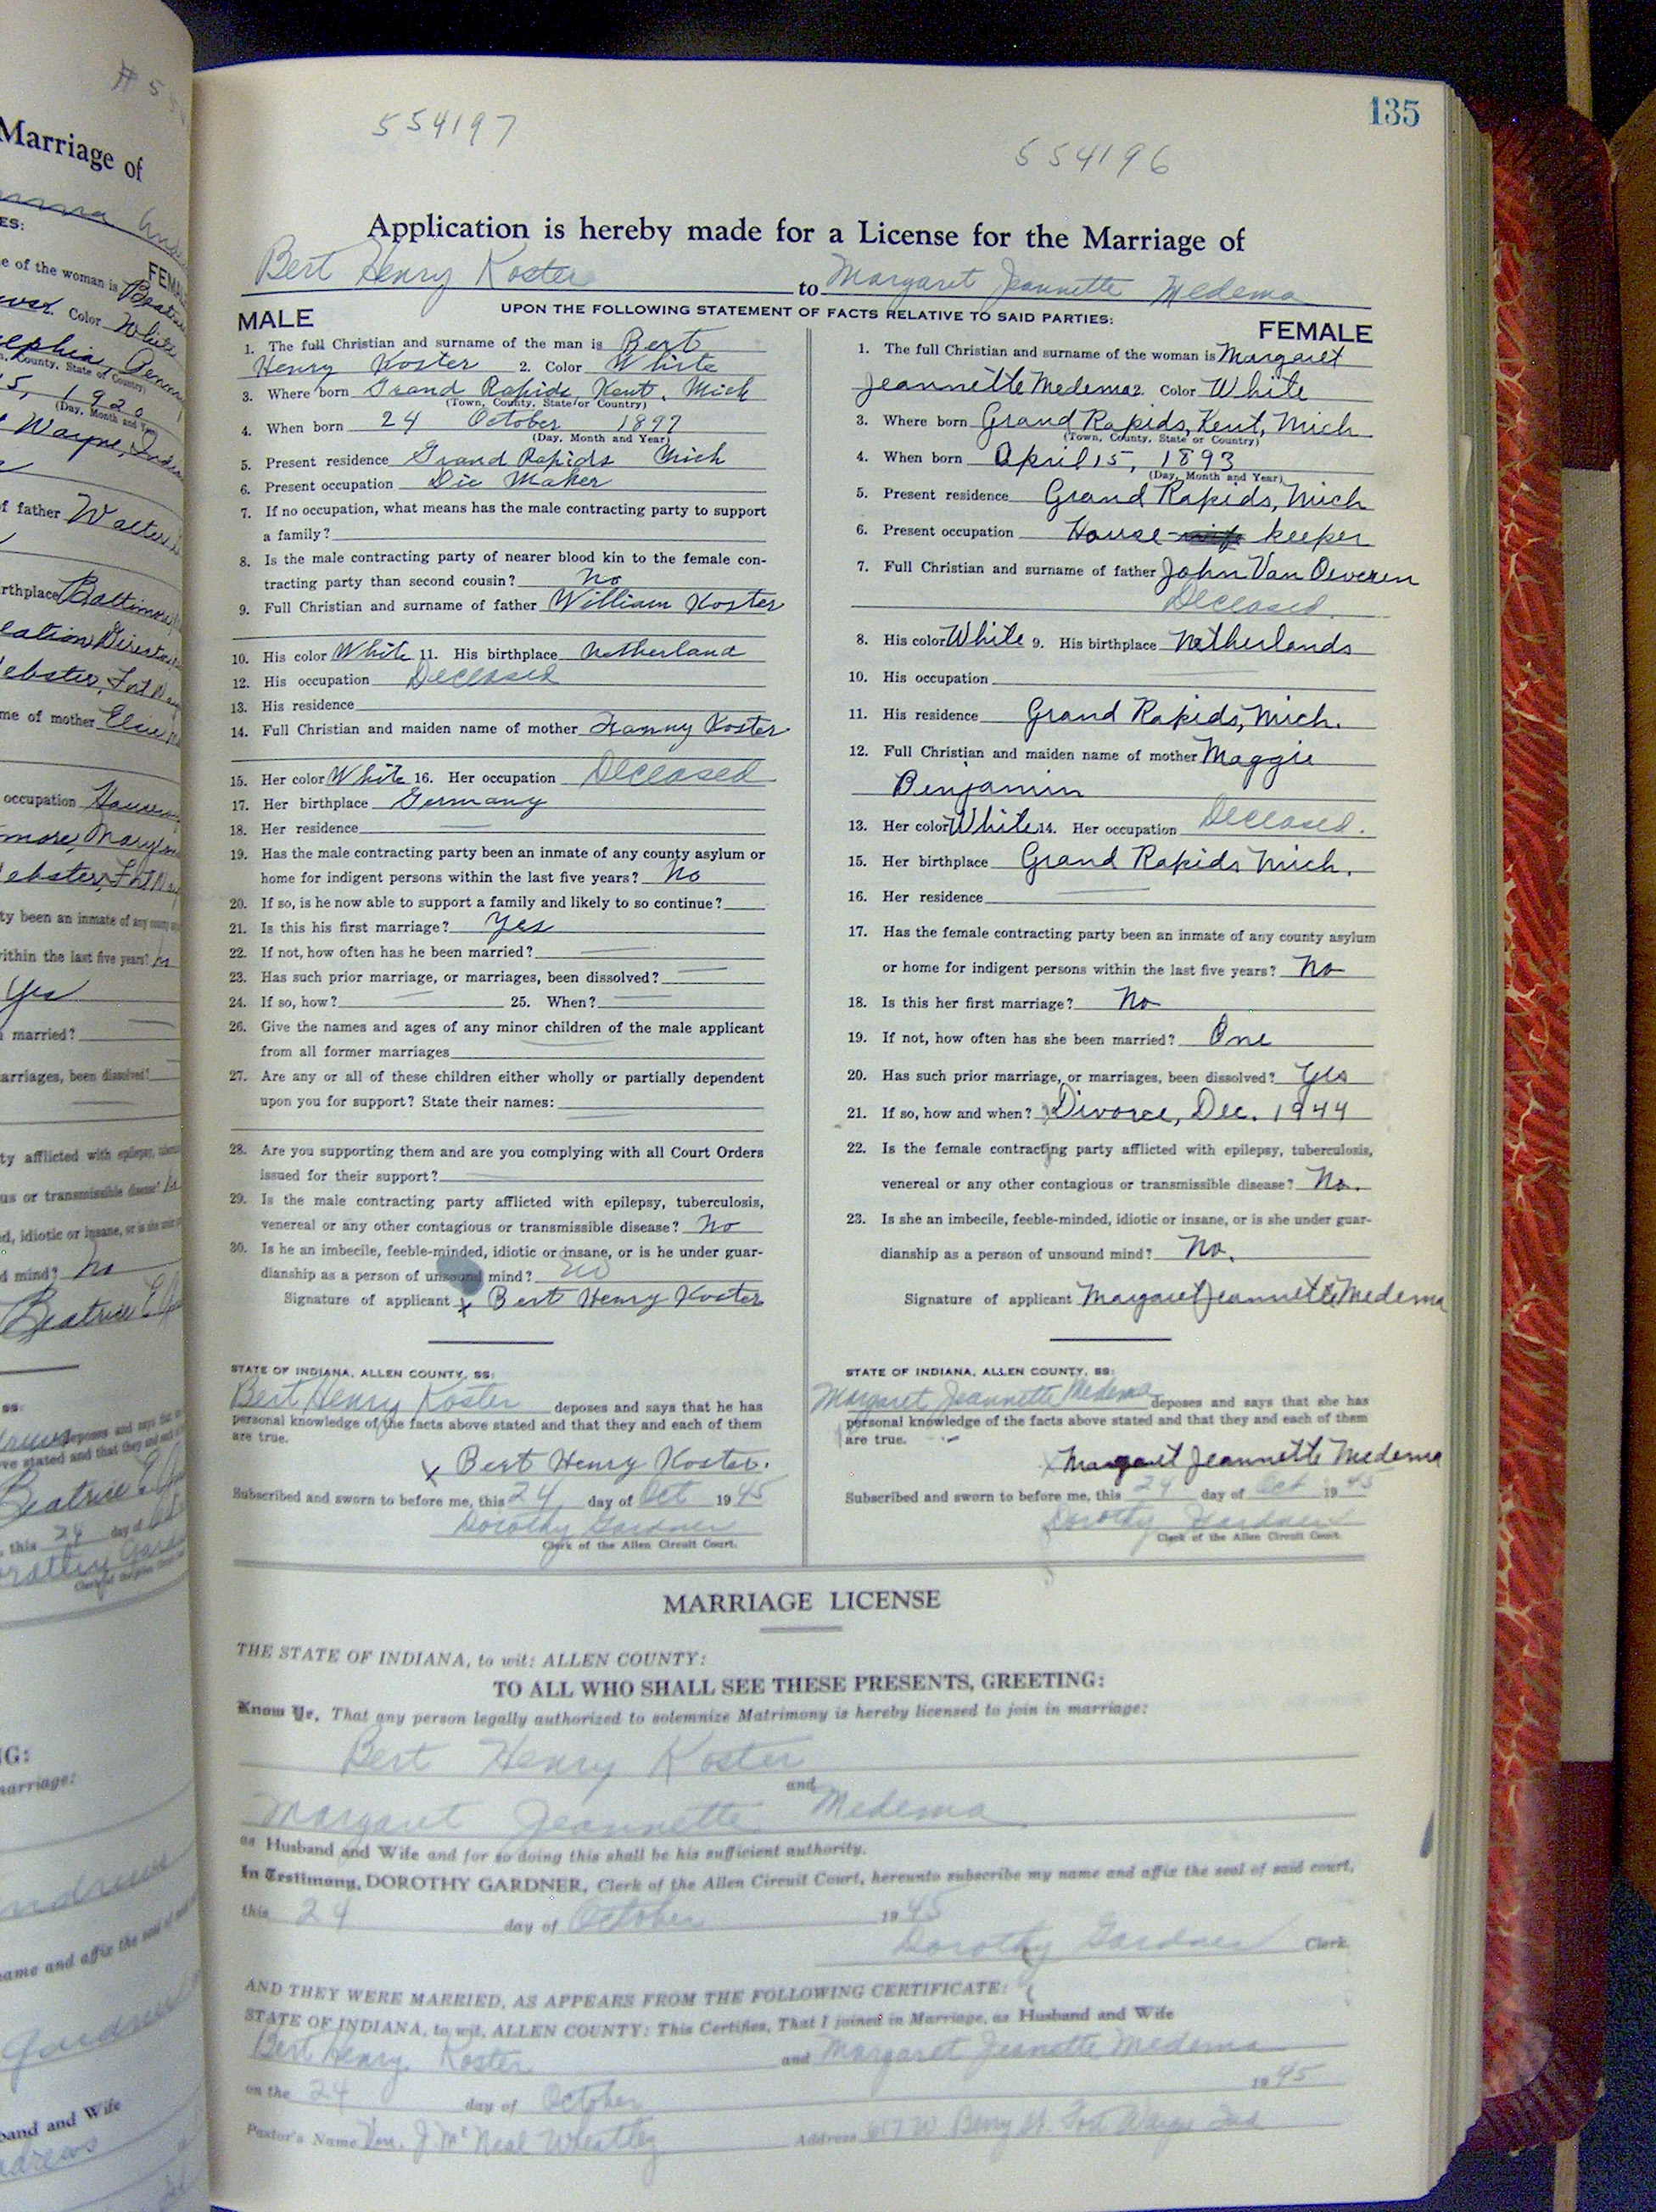 # 5
Marriage of
ES:
e of the woman is
FEMA
Color White
n, County, State or Country)
5, 1920
(Day, Month and
Wayne,
f father Walter
rthplace Baltimore
ebster, Fort
me of mother Elsie
occupation
more, Maryland
ebster,
ty been an inmate of any county
within the last five years?
Yes
married?
arriages, been dissolved?
ty afflicted with epilepsy,
us or transmissible disease?
ed, idiotic or insane, or is she under
d mind? No
Beatrice E
ss:
deposes and says that
ve stated and that they and each of
Beatrice E
, this 24 day of
G:
marriage:
ndrews
name and affix the seal of
Gardner
band and Wife
ndrews
135
554197
554196
Application is hereby made for a License for the Marriage of
Bert Henry Koster to Margaret Jeannette Medema
UPON THE FOLLOWING STATEMENT OF FACTS RELATIVE TO SAID PARTIES:
MALE
1. The full Christian and surname of the man is Bert
Henry Koster 2. Color White
3. Where born Grand Rapids, Kent, Mich
(Town, County, State or Country)
4. When born 24 October 1897
(Day, Month and Year)
5. Present residence Grand Rapids Mich
6. Present occupation Die Maker
7. If no occupation, what means has the male contracting party to support
a family?
8. Is the male contracting party of nearer blood kin to the female con-
tracting party than second cousin? no
9. Full Christian and surname of father William Koster
10. His color White 11. His birthplace Netherland
12. His occupation Deceased
13. His residence
14. Full Christian and maiden name of mother Fanny Koster
15. Her color White 16. Her occupation Deceased
17. Her birthplace Germany
18. Her residence
19. Has the male contracting party been an inmate of any county asylum or
home for indigent persons within the last five years? No
20. If so, is he now able to support a family and likely to so continue?
21. Is this his first marriage? Yes
22. If not, how often has he been married?
23. Has such prior marriage, or marriages, been dissolved?
24. If so, how? 25. When?
26. Give the names and ages of any minor children of the male applicant
from all former marriages
27. Are any or all of these children either wholly or partially dependent
upon you for support? State their names:
28. Are you supporting them and are you complying with all Court Orders
issued for their support?
29. Is the male contracting party afflicted with epilepsy, tuberculosis,
venereal or any other contagious or transmissible disease? No
30. Is he an imbecile, feeble-minded, idiotic or insane, or is he under guar-
dianship as a person of unsound mind? no
Signature of applicant x Bert Henry Koster
STATE OF INDIANA, ALLEN COUNTY, SS:
Bert Henry Koster deposes and says that he has
personal knowledge of the facts above stated and that they and each of them
are true.
x Bert Henry Koster.
Subscribed and sworn to before me, this 24 day of Oct 1945
Dorothy Gardner
Clerk of the Allen Circuit Court.
FEMALE
1. The full Christian and surname of the woman is Margaret
Jeannette Medema 2. Color White
3. Where born Grand Rapids, Kent, Mich
(Town, County, State or Country)
4. When born April 15, 1893
(Day, Month and Year)
5. Present residence Grand Rapids, Mich
6. Present occupation House keeper
7. Full Christian and surname of father John Van Oeveren
Deceased
8. His color White 9. His birthplace Netherlands
10. His occupation
11. His residence Grand Rapids, Mich.
12. Full Christian and maiden name of mother Maggie
Benjamin
13. Her color White 14. Her occupation Deceased.
15. Her birthplace Grand Rapids Mich.
16. Her residence
17. Has the female contracting party been an inmate of any county asylum
or home for indigent persons within the last five years? No
18. Is this her first marriage? No
19. If not, how often has she been married? One
20. Has such prior marriage, or marriages, been dissolved? Yes
21. If so, how and when? Divorce, Dec. 1944
22. Is the female contracting party afflicted with epilepsy, tuberculosis,
venereal or any other contagious or transmissible disease? No.
23. Is she an imbecile, feeble-minded, idiotic or insane, or is she under guar-
dianship as a person of unsound mind? No.
Signature of applicant Margaret Jeannette Medema
STATE OF INDIANA, ALLEN COUNTY, SS:
Margaret Jeannette Medema deposes and says that she has
personal knowledge of the facts above stated and that they and each of them
are true.
x Margaret Jeannette Medema
Subscribed and sworn to before me, this 24 day of Oct 1945
Dorothy Gardner
Clerk of the Allen Circuit Court.
MARRIAGE LICENSE
THE STATE OF INDIANA, to wit: ALLEN COUNTY:
TO ALL WHO SHALL SEE THESE PRESENTS, GREETING:
Know Ye, That any person legally authorized to solemnize Matrimony is hereby licensed to join in marriage:
Bert Henry Koster
and
Margaret Jeannette Medema
as Husband and Wife and for so doing this shall be his sufficient authority.
In Testimony, DOROTHY GARDNER, Clerk of the Allen Circuit Court, hereunto subscribe my name and affix the seal of said court,
this 24 day of October 1945
Dorothy Gardner Clerk.
AND THEY WERE MARRIED, AS APPEARS FROM THE FOLLOWING CERTIFICATE:
STATE OF INDIANA, to wit, ALLEN COUNTY: This Certifies, That I joined in Marriage, as Husband and Wife
Bert Henry Koster and Margaret Jeanette Medema
on the 24 day of October 1945
Pastor's Name Rev. J. McNeal Wheatley Address 617 W. Berry St. Fort Wayne Ind